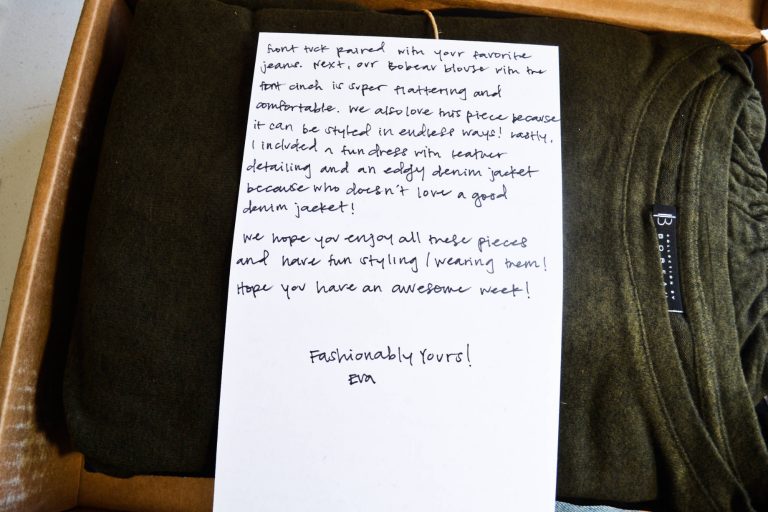 front tuck paired with your favorite
jeans. Next, our Bobeau blouse with the
font cinch is super flattering and
comfortable. We also love this piece because
it can be styled in endless ways! Lastly,
I included a fun dress with leather
detailing and an edgy denim jacket
because who doesn't love a good
denim jacket!
We hope you enjoy all these pieces
and have fun styling/wearing them!
Hope you have an awesome week!
Fashionably Yours!
Eva
B
COLLECTION BY